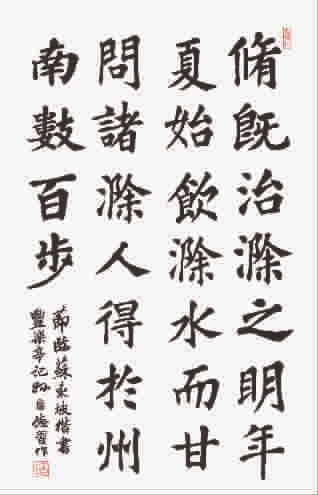 脩既治滁之明年
夏始飲滁水而甘
問諸滁人得於州
南數百步
節臨蘇東坡楷書
豐樂亭記 習作